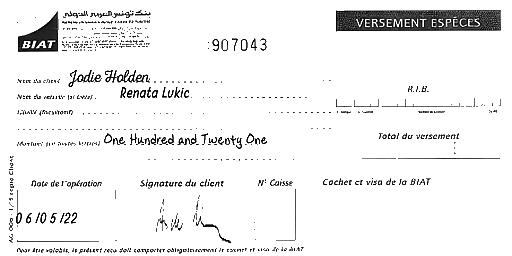 بنك تونس العربي الدولي
BIAT
VERSEMENT ESPÈCES
907043
Nom du client Jodie Holden
Nom du Renata Lukic
R.I.B.
Montant (en toutes lettres) One Hundred and Twenty One
Total du versement
Date de l'opération Signature du client N° Caisse Cachet et visa de la BIAT
06/05/22
Pour être valable, le présent reçu doit comporter obligatoirement le cachet et visa de la BIAT